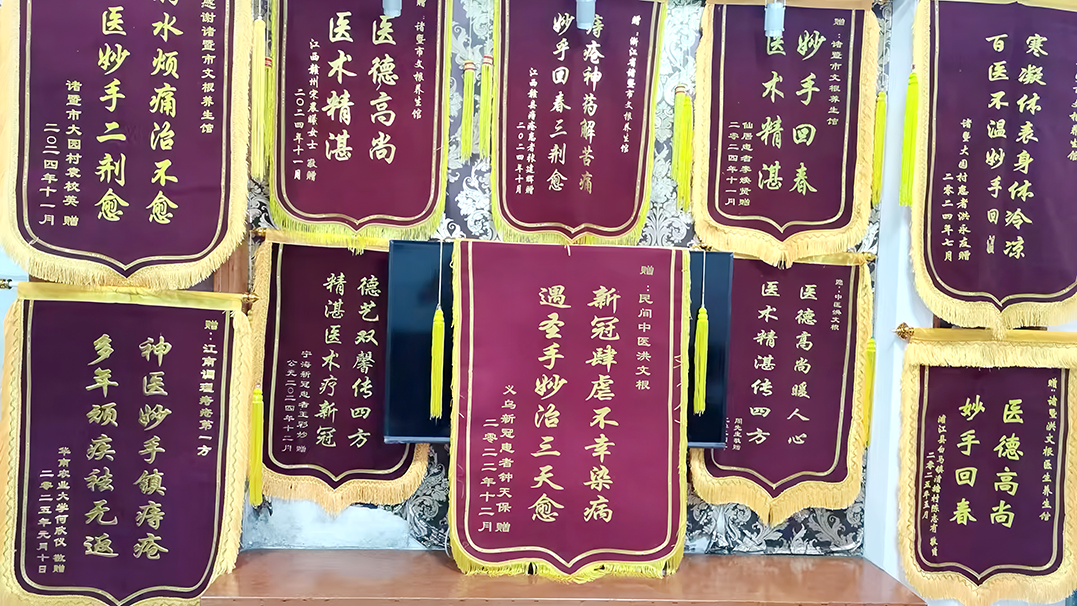 谢诸暨市文根养生馆
水烦痛治不愈
医妙手二剂愈
诸暨市大园村袁校英 赠
二〇二四年十一月
诸暨市文根养生馆
医德高尚
医术精湛
江西赣州宋春暖女士 敬赠
二〇二四年十一月
赠:浙江省诸暨市文根养生馆
痔疮神药解苦痛
妙手回春三剂愈
江西赣县痔疮患者张建辉赠
二〇二四年十月
赠:诸暨市文根养生馆
妙手回春
医术精湛
仙居患者李焕贤赠
二零二四年十一月
诸暨市文根养生馆
寒凝体衰身体冷凉
百医不温妙手回
诸暨大园村患者洪永应赠
二零二四年七月
赠:江南调理痔疮第一方
神医妙手镇痔疮
多年顽疾祛无返
华南农业大学何成仪 敬赠
二〇二五年元月十日
德艺双馨传四方
精湛医术疗新冠
宁海新冠患者王彩妙 赠
公元二〇二四年十二月
赠:民间中医洪文根
新冠肆虐不幸染病
遇圣手妙治三天愈
义乌新冠患者钟天保 赠
二零二二年十二月
赠:中医洪文根
医德高尚暖人心
医术精湛传四方
周先生敬赠
赠:诸暨洪文根医生养生馆
医德高尚
妙手回春
浦江县白马镇 村陈志有 敬赠
二零二五年五月